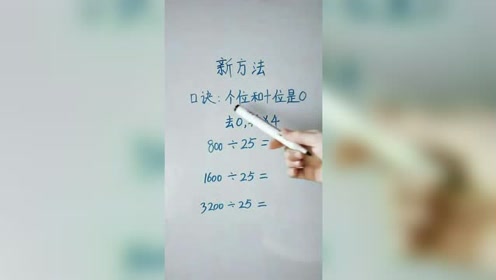 新方法
口诀:个位和十位是0
去0, ×4
800÷25=
1600÷25=
3200÷25=